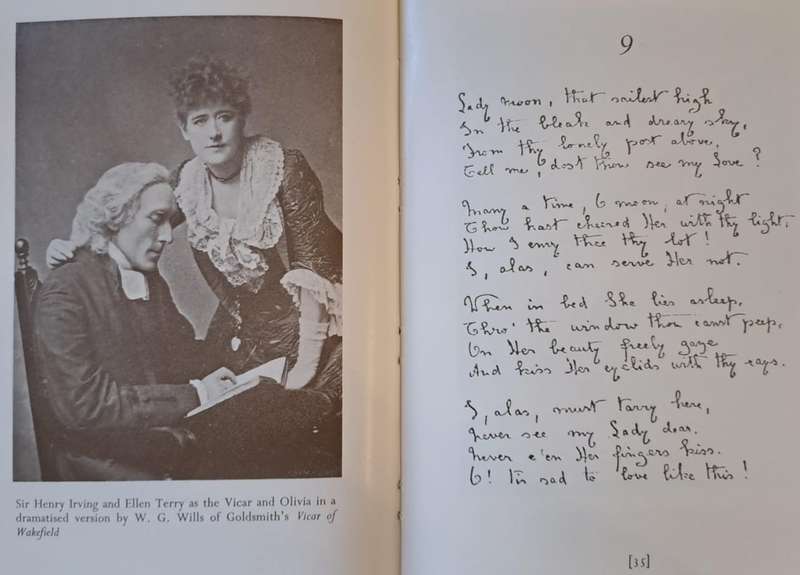 Sir Henry Irving and Ellen Terry as the Vicar and Olivia in a
dramatised version by W. G. Wills of Goldsmith's Vicar of
Wakefield
9
Lady moon, that sailest high
In the bleak and dreary sky,
From thy lonely post above,
Tell me, dost thou see my Love?
Many a time, O moon, at night
Thou hast cheered Her with thy light.
How I envy thee thy lot!
I, alas, can serve Her not.
When in bed She lies asleep,
Thro' the window thou canst peep,
On Her beauty freely gaze
And kiss Her eyelids with thy rays.
I, alas, must tarry here,
Never see my Lady dear.
Never e'en Her fingers kiss.
O! 'tis sad to love like this!
[35]